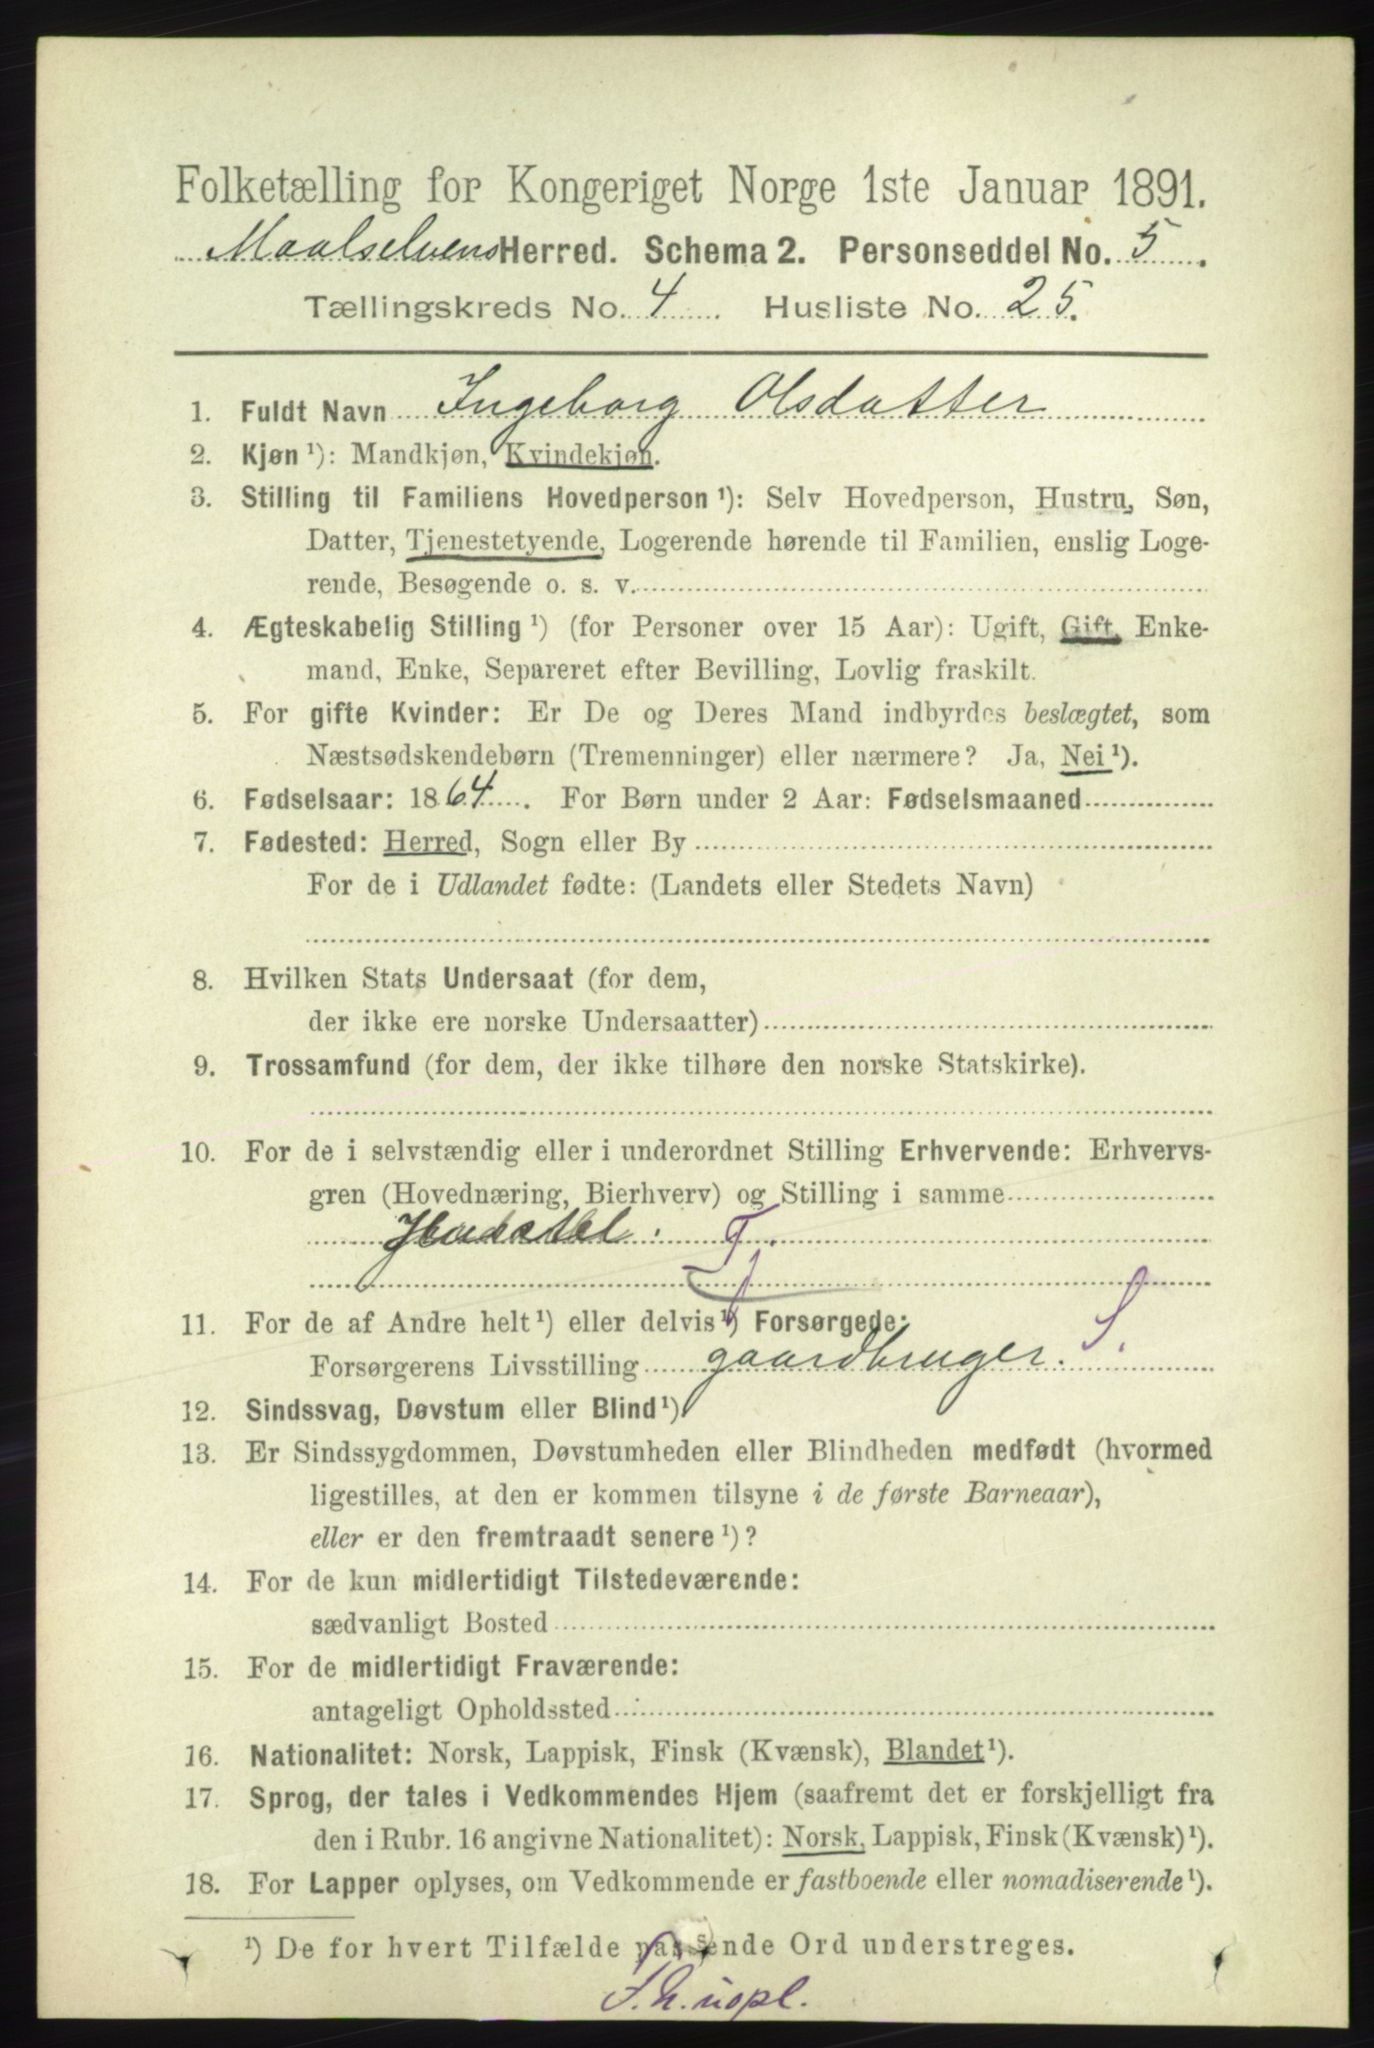 Folketælling for Kongeriget Norge 1ste Januar 1891.
Maalselvens Herred. Schema 2. Personseddel No. 5.
Tællingskreds No. 4 Husliste No. 25.
1. Fuldt Navn Ingeborg Olsdatter
2. Kjøn ¹): Mandkjøn, Kvindekjøn.
3. Stilling til Familiens Hovedperson ¹): Selv Hovedperson, Hustru, Søn,
Datter, Tjenestetyende, Logerende hørende til Familien, enslig Loge-
rende, Besøgende o. s. v.
4. Ægteskabelig Stilling ¹) (for Personer over 15 Aar): Ugift, Gift, Enke-
mand, Enke, Separeret efter Bevilling, Lovlig fraskilt.
5. For gifte Kvinder: Er De og Deres Mand indbyrdes beslægtet, som
Næstsødskendebørn (Tremenninger) eller nærmere? Ja, Nei ¹).
6. Fødselsaar: 1864. For Børn under 2 Aar: Fødselsmaaned
7. Fødested: Herred, Sogn eller By
For de i Udlandet fødte: (Landets eller Stedets Navn)
8. Hvilken Stats Undersaat (for dem,
der ikke ere norske Undersaatter)
9. Trossamfund (for dem, der ikke tilhøre den norske Statskirke).
10. For de i selvstændig eller i underordnet Stilling Erhvervende: Erhvervs-
gren (Hovednæring, Bierhverv) og Stilling i samme
T.
11. For de af Andre helt ¹) eller delvis ¹) Forsørgede:
Forsørgerens Livsstilling gaardbruger. S.
12. Sindssvag, Døvstum eller Blind ¹)
13. Er Sindssygdommen, Døvstumheden eller Blindheden medfødt (hvormed
ligestilles, at den er kommen tilsyne i de første Barneaar),
eller er den fremtraadt senere ¹)?
14. For de kun midlertidigt Tilstedeværende:
sædvanligt Bosted
15. For de midlertidigt Fraværende:
antageligt Opholdssted
16. Nationalitet: Norsk, Lappisk, Finsk (Kvænsk), Blandet ¹).
17. Sprog, der tales i Vedkommendes Hjem (saafremt det er forskjelligt fra
den i Rubr. 16 angivne Nationalitet): Norsk, Lappisk, Finsk (Kvænsk) ¹).
18. For Lapper oplyses, om Vedkommende er fastboende eller nomadiserende ¹).
¹) De for hvert Tilfælde passende Ord understreges.